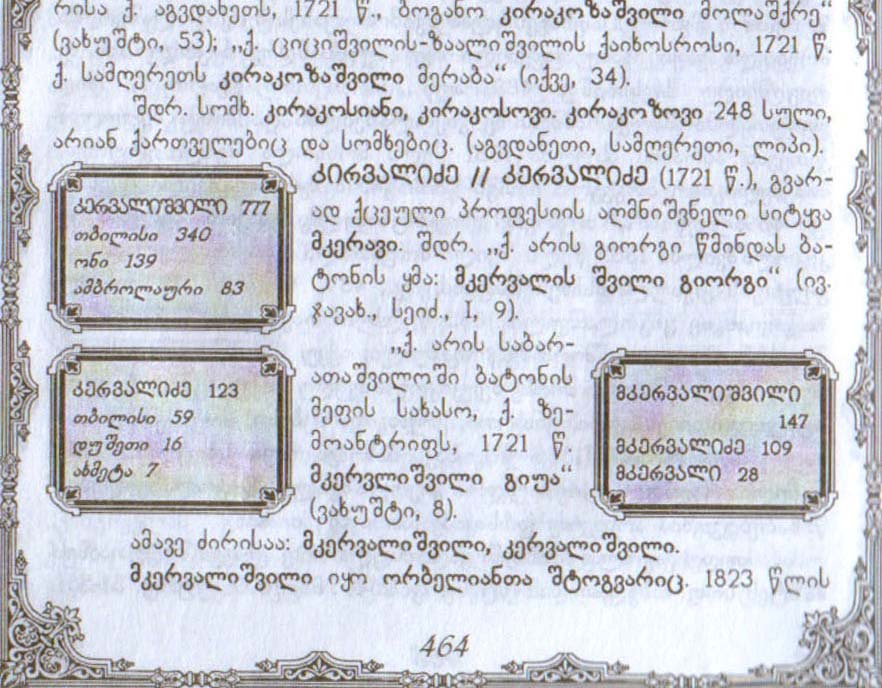 რისა ქ. აგვდანეთს, 1721 წ., ბოგანო კირაკოზაშვილი მოლაშქრე“
(ვახუშტი, 53); „ქ. ციციშვილის-ზაალიშვილის ქაიხოსროსი, 1721 წ.
ქ. სამღერეთს კირაკოზაშვილი მერაბა“ (იქვე, 34).
შდრ. სომხ. კირაკოსიანი, კირაკოსოვი. კირაკოზოვი 248 სული,
არიან ქართველებიც და სომხებიც. (აგვდანეთი, სამღერეთი, ლიპი).
კირვალიძე // კერვალიძე (1721 წ.), გვარ-
ად ქცეული პროფესიის აღმნიშვნელი სიტყვა
მკერავი. შდრ. „ქ. არის გიორგი წმინდას ბა-
ტონის ყმა: მკერვალის შვილი გიორგი“ (ივ.
ჯავახ., სეიძ., I, 9).
„ქ. არის საბარ-
ათაშვილოში ბატონის
მეფის სახასო, ქ. ზე-
მოანტრიფს, 1721 წ.
მკერვლიშვილი გიუა“
(ვახუშტი, 8).
კერვალიშვილი 777
თბილისი 340
ონი 139
ამბროლაური 83
კერვალიძე 123
თბილისი 59
დუშეთი 16
ახმეტა 7
მკერვალიშვილი
147
მკერვალიძე 109
მკერვალი 28
ამავე ძირისაა: მკერვალიშვილი, კერვალიშვილი.
მკერვალიშვილი იყო ორბელიანთა შტოგვარიც. 1823 წლის
464